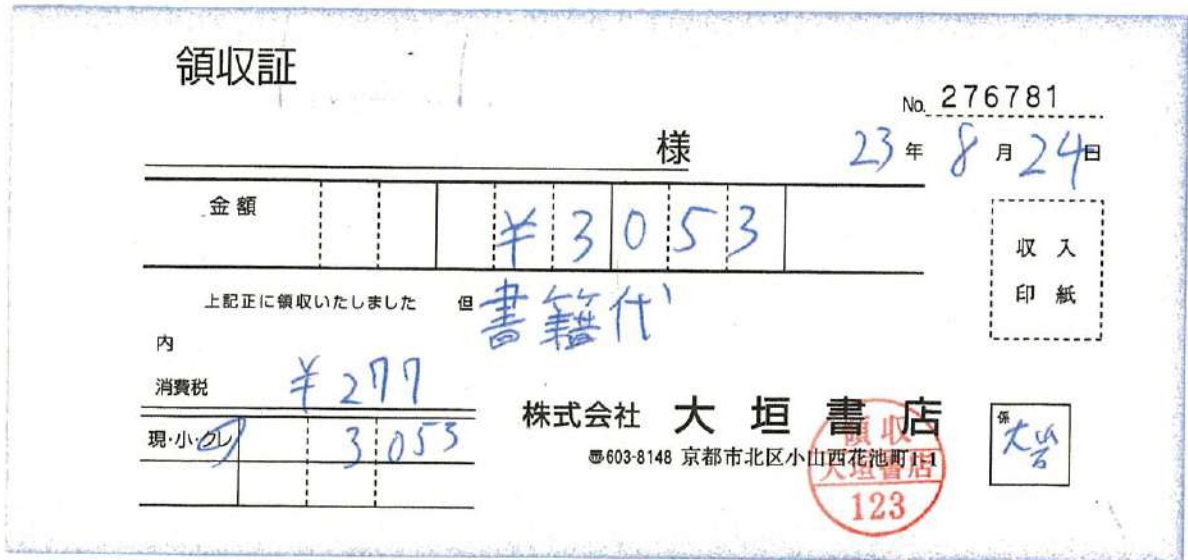 領収証
No. 276781
様
23年 8月24日
金額 ¥3053
収入
印紙
上記正に領収いたしました 但 書籍代
内
消費税 ¥277
現・小・クレ 3053
株式会社 大垣書店
〠603-8148 京都市北区小山西花池町1-1
領収
大垣書店
123
係